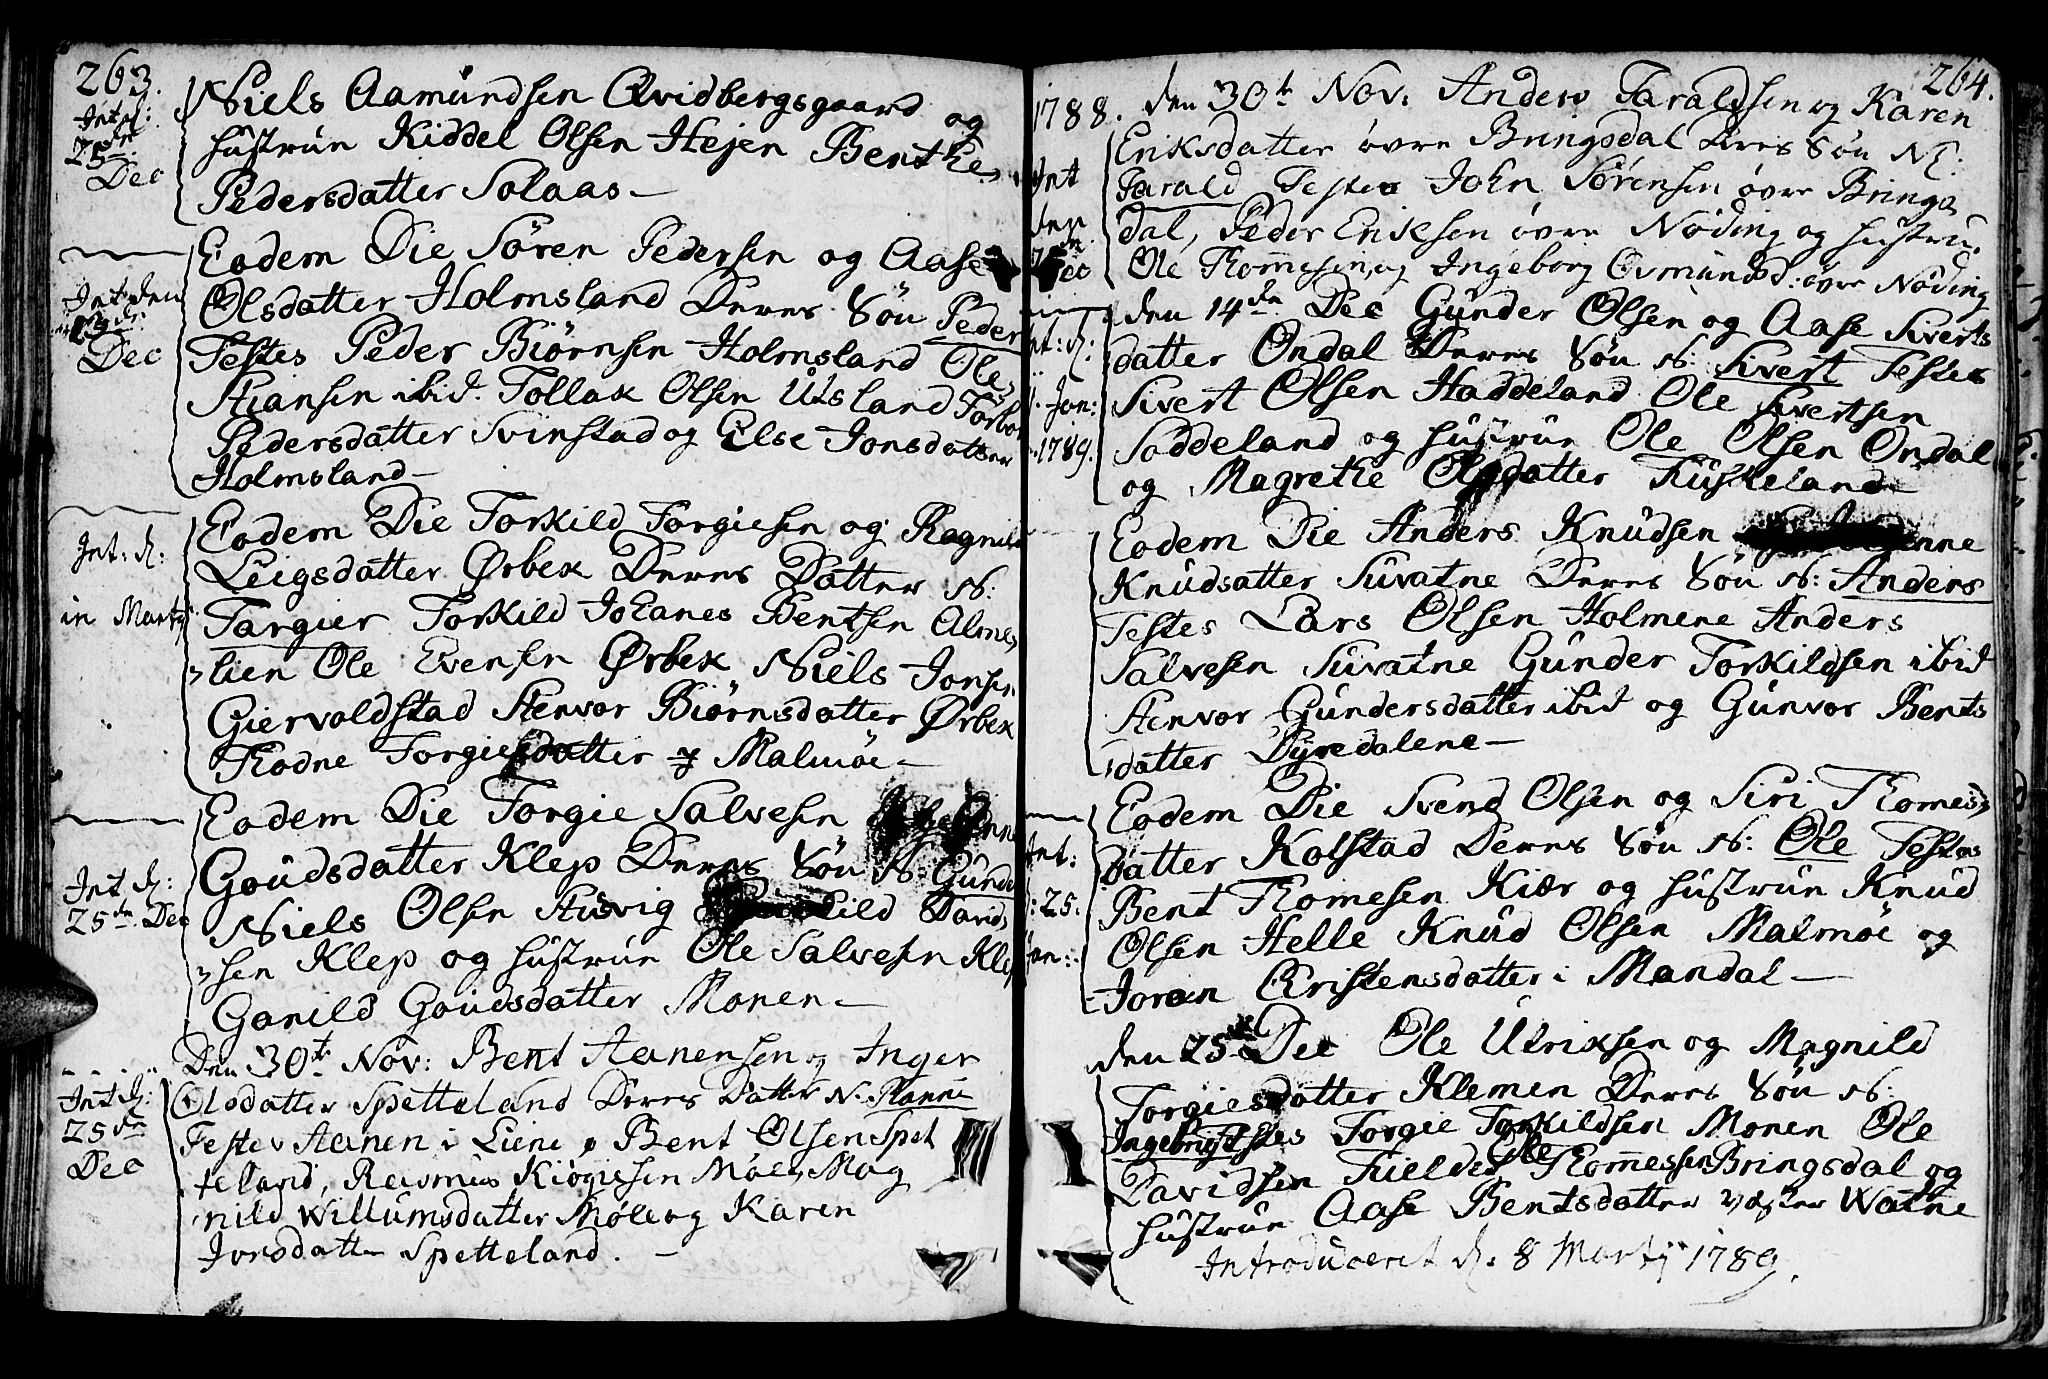 263.
Int d:
25de
Dec
Niels Aamundsen Qvidbergsgaard og
hustrue Kiddel Olsen Hejen Benthe
Pedersdatter Solaas —
Int den
Dec
Eodem Die Sören Pedersen og Aase
Olsdatter Holmsland Deres Sön Peder
Testes Peder Biörnsen Holmsland Ole
Stiansen ibid. Tollak Olsen Udsland Torbor
Pedersdatter Svinstad og Else Jonsdatter
Holmsland —
Int: d:
in Martÿ
Eodem Die Torkild Torgiesen og Ragnild
Leigsdatter Ørbek Deres Datter N:
Targier Torkild Johanes Bentsen Almes
lien Ole Evensen Ørbek Niels Jonsen
Giervoldstad Stenvor Biörnsdatter Ørbek
Thodne Torgiesdatter Malmöe —
Int d:
25de Dec
Eodem Die Torgie Salvesen
Goudsdatter Klep Deres Sön N: Gunde
Niels Olsen Ausvig David
sen Klep og hustrue Ole Salvesen Klep
Gonild Goudsdatter Monen —
Int d:
25de
Dec
Den 30te Nov: Bent Aanensen og Inger
Olsdatter Spetteland Deres Datter N. Stanni
Testes Aanen i Liene, Bent Olsen Spet
teland, Rasmus Kiögissen Möle, Mag
nild Willumsdatter Möle og Karen
Jorsdatter Spetteland. —
264.
1788. den 30te Nov: Anders Taraldsen og Karen
Int
den
Dec
Eriksdatter övre Bringsdal Deres Sön N:
Tarald Testes John Sörensen övre Brings
dal, Peder Eriksen övre Nöding og hustru,
Ole Thommesen, og Ingeborg Osmunds: övre Nöding
nt: d:
Jan:
1789.
den 14de Dec Gunder Olsen og Aase Siverts
datter Ondal Deres Sön N: Sivert Testes
Sivert Olsen Haddeland Ole Sivertsen
Soddeland og hustrue Ole Olsen Ondal
og Magrethe Olsdatter Tusteland
Eodem Die Anders Knudsen
Knudsatter Suvatne Deres Sön N: Anders
Testes Lars Olsen Holmene Anders
Salvesen Suvatne Gunder Torkildsen ibid
Stenvor Gundersdatter ibid og Gunvor Bents
datter Dyredalene —
Int:
25.
Jan:
Eodem Die Svend Olsen og Siri Thomes
datter Kolstad Deres Sön N: Ole Testes
Bent Thomesen Kiær og hustrue Knud
Olsen Helle Knud Olsen Malmöe og
Joran Christensdatter i Mandal —
den 25 Dec Ole Ulriksen og Magnild
Torgiesdatter Klemen Deres Sön N:
Ingebrigt Testes Torgie Torkildsen Monen Ole
Davidsen Ole Thommessen Bringsdal og
hustrue Aase Bentsdatter væster Watne
Introduceret d: 8 Martÿ 1789.